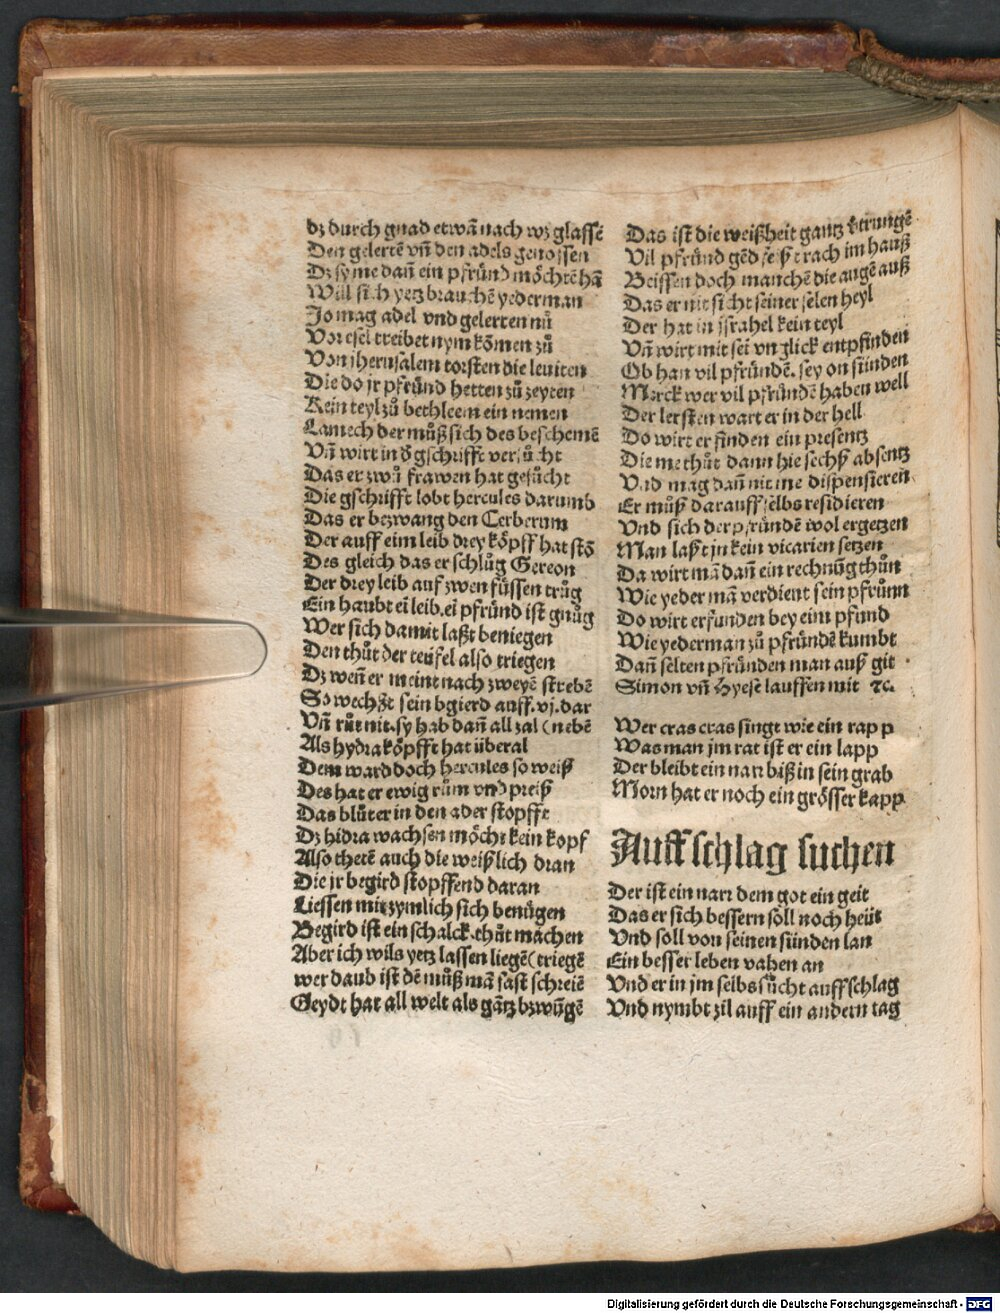 dz durch gnad etwā nach wz glassē
Den gelertē vñ den adels genossen
Dz sy me dañ ein pfründ möchtē hā
Will sich yetz brauchē yederman
Jo mag adel vnd gelerten nū
Vor esel treibet nym kōmen zů
Von jherusalem torsten die leuiten
Die do jr pfründ hetten zů zeyten
Kein teyl zů bethleem ein nemen
Lamech der můß sich des beschemē
Vñ wirt in d̄ gschrifft versůcht
Das er zwů frawen hat gesůcht
Die gschrifft lobt hercules darumb
Das er bezwang den Cerberum
Der auff eim leib drey köpff hat stō
Des gleich das er schlůg Gereon
Der drey leib auf zwen füssen trůg
Ein haubt ei leib. ei pfründ ist gnůg
Wer sich damit laßt beniegen
Den thůt der teüfel also triegen
Dz weñ er meint nach zweyē strebē
So wechßt sein bgierd auff. vj. dar
Vñ růt nit. sy hab dañ all zal (nebē
Als hydra köpfft hat überal
Dem ward doch hercules so weiß
Des hat er ewig rům vnd preiß
Das blůt er in den ader stopfft
Dz hidra wachsen möcht kein kopf
Also thetē auch die weißlich dran
Die jr begird stopffend daran
Liessen mit zymlich sich benügen
Begird ist ein schalck. thůt machen
Aber ich wils yetz lassen liegē (triegē
wer daub ist dē můß mā fast schreiē
Geydt hat all welt als gātz bzwūgē
Das ist die weißheit gantz v̄trungē
Vil pfründ gēd feißt rach im hauß
Beissen doch manchē die augē auß
Das er nit sicht seiner selen heyl
Der hat in jsrahel kein teyl
Vñ wirt mit sei vnglick entpfinden
Ob han vil pfründē. sey on sünden
Merck wer vil pfründē haben well
Der letsten wart er in der hell
Do wirt er finden ein presentz
Die me thůt dann hie sechß absentz
Vnd mag dañ nit me dispensieren
Er můß darauff selbs residieren
Vnd sich der pfründē wol ergetzen
Man laßt jn kein vicarien setzen
Da wirt mā dañ ein rechnūg thůn
Wie yeder mā verdient sein pfrůnn
Do wirt erfunden bey eim pfund
Wie yederman zů pfründē kumbt
Dañ selten pfründen man auß git
Simon vñ Hyese lauffen mit ⁊c.
Wer cras cras singt wie ein rapp
Was man jm rat ist er ein lapp
Der bleibt ein narr biß in sein grab
Morn hat er noch ein grösser kapp
Auffschlag suchen
Der ist ein narr dem got ein geit
Das er sich bessern söll noch heüt
Vnd soll von seinen sünden lan
Ein besser leben vahen an
Vnd er in jm selbs sůcht auffschlag
Vnd nymbt zil auff ein andern tag
Digitalisierung gefördert durch die Deutsche Forschungsgemeinschaft - DFG